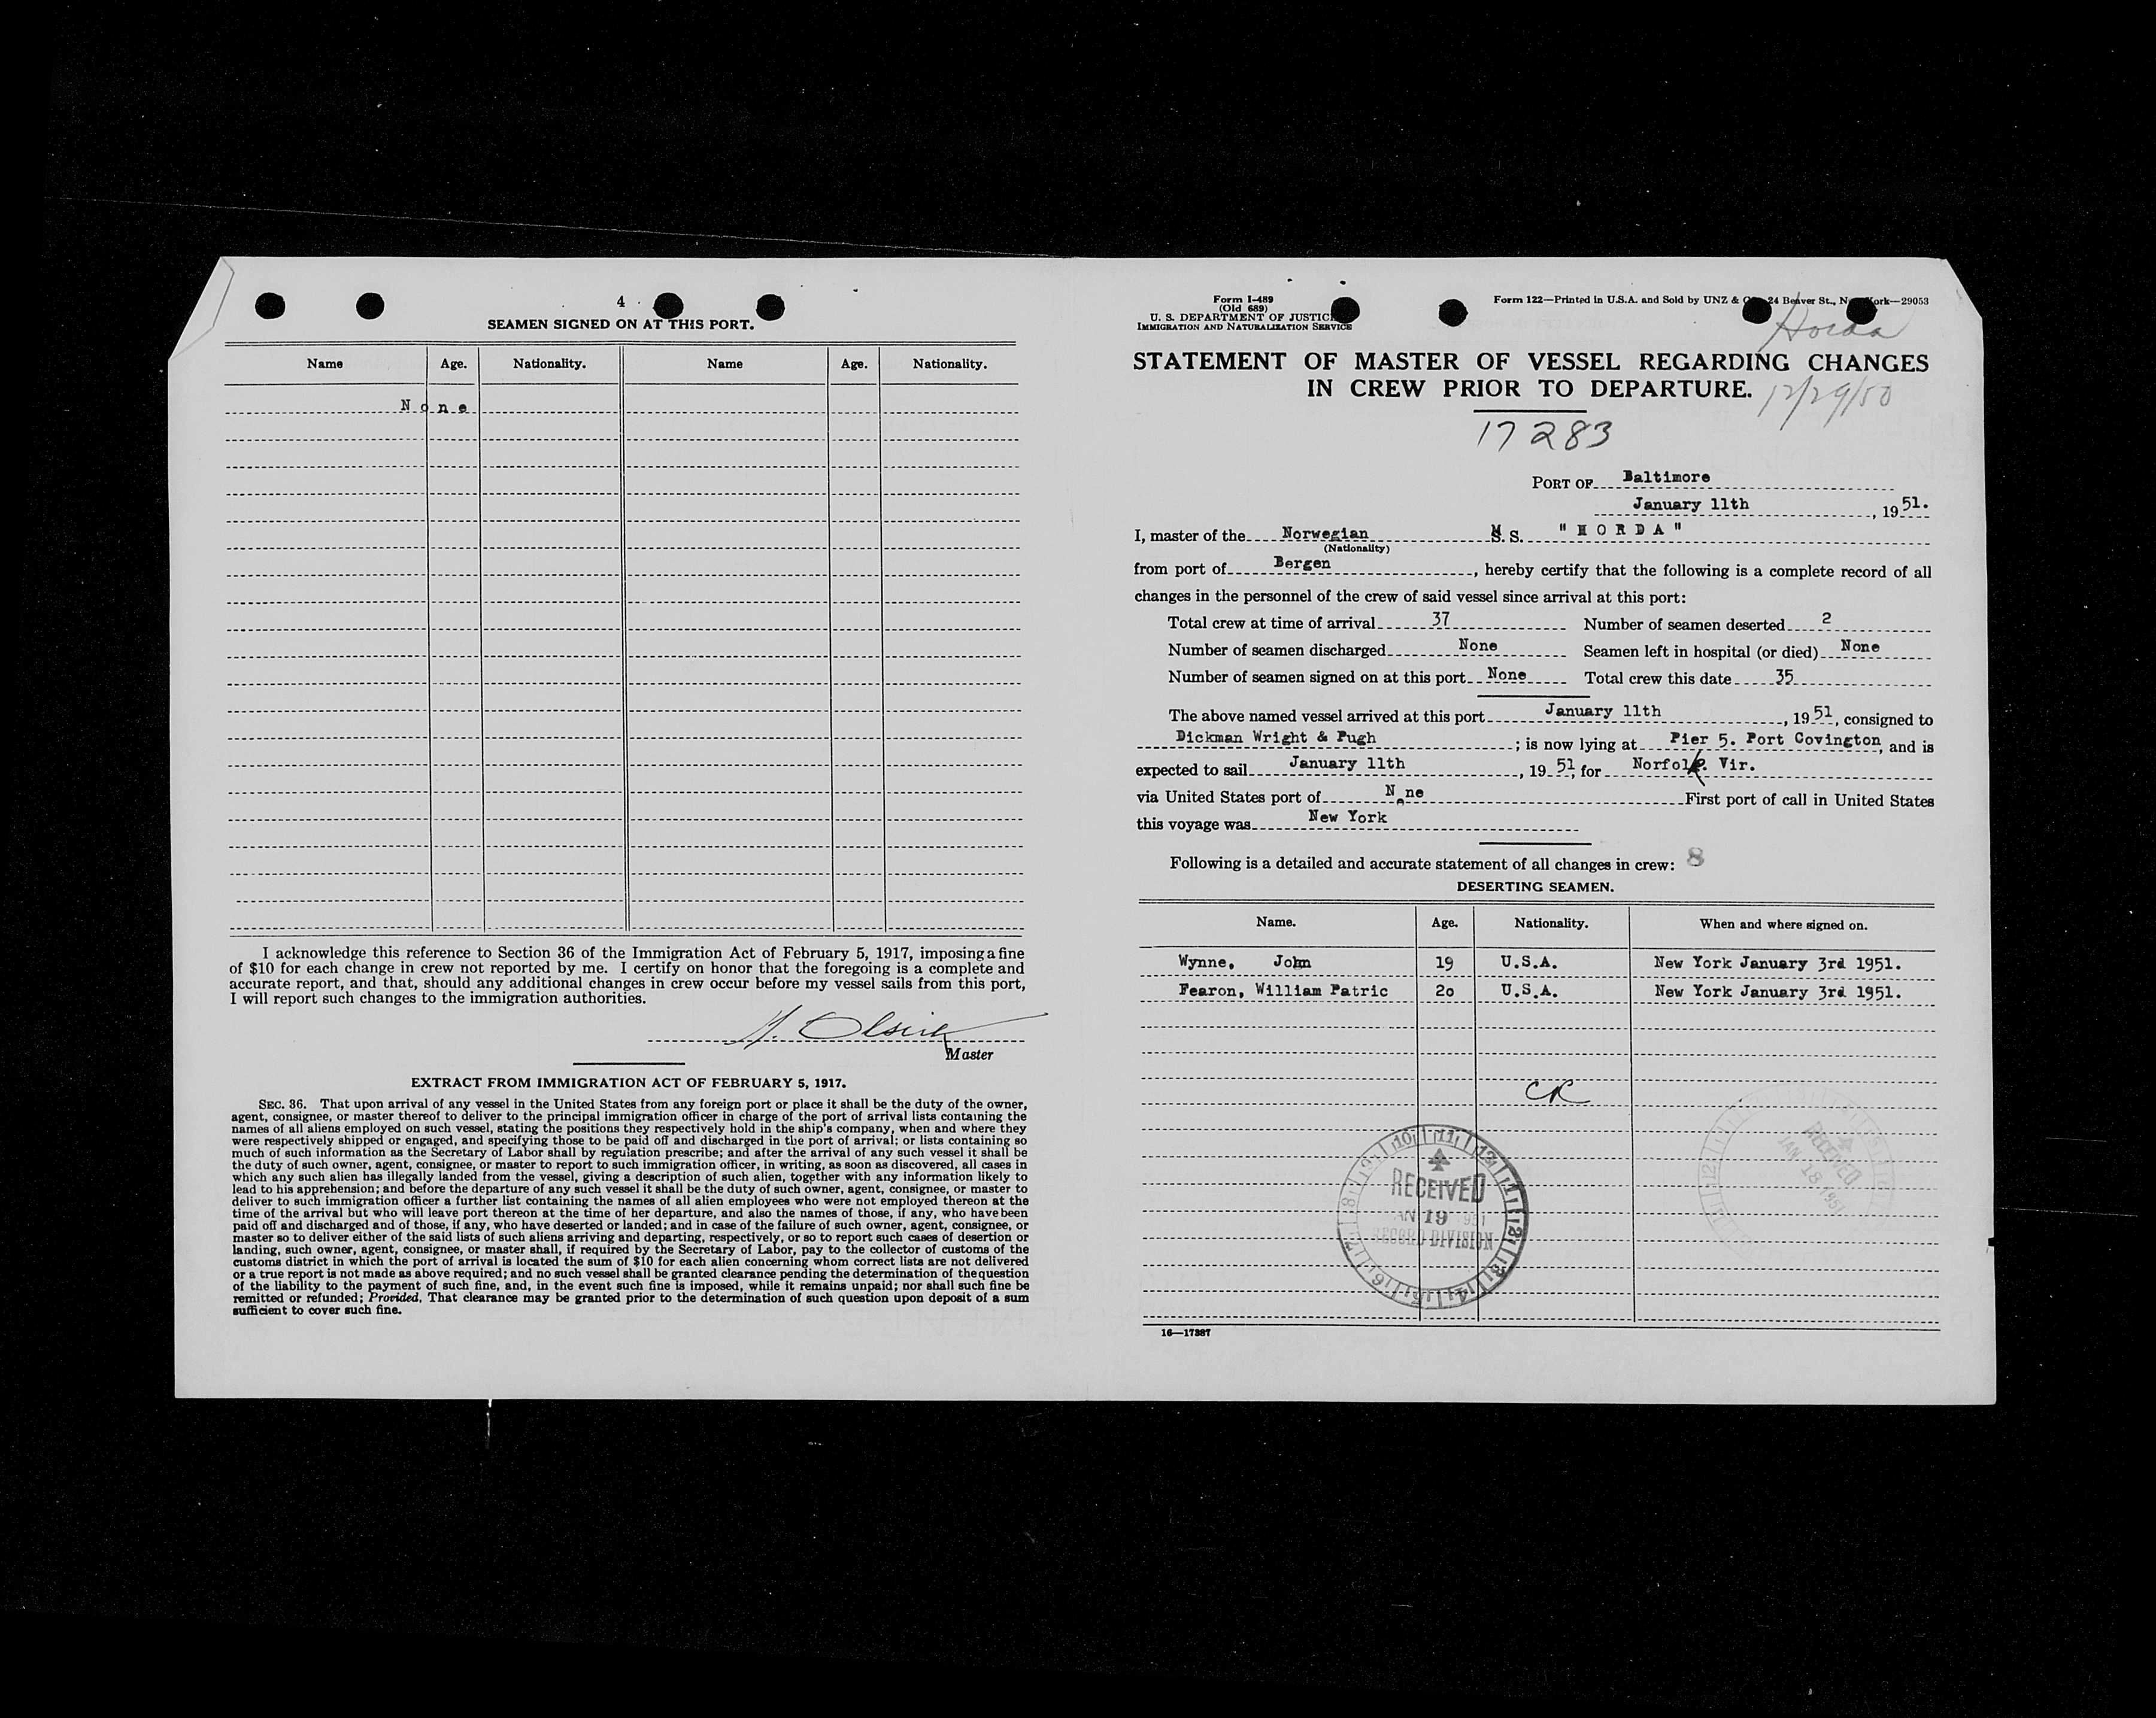 4
SEAMEN SIGNED ON AT THIS PORT.
Name Age. Nationality. Name Age. Nationality.
None
I acknowledge this reference to Section 36 of the Immigration Act of February 5, 1917, imposing a fine
of $10 for each change in crew not reported by me. I certify on honor that the foregoing is a complete and
accurate report, and that, should any additional changes in crew occur before my vessel sails from this port,
I will report such changes to the immigration authorities.
Master
EXTRACT FROM IMMIGRATION ACT OF FEBRUARY 5, 1917.
SEC. 36. That upon arrival of any vessel in the United States from any foreign port or place it shall be the duty of the owner,
agent, consignee, or master thereof to deliver to the principal immigration officer in charge of the port of arrival lists containing the
names of all aliens employed on such vessel, stating the positions they respectively hold in the ship's company, when and where they
were respectively shipped or engaged, and specifying those to be paid off and discharged in the port of arrival; or lists containing so
much of such information as the Secretary of Labor shall by regulation prescribe; and after the arrival of any such vessel it shall be
the duty of such owner, agent, consignee, or master to report to such immigration officer, in writing, as soon as discovered, all cases in
which any such alien has illegally landed from the vessel, giving a description of such alien, together with any information likely to
lead to his apprehension; and before the departure of any such vessel it shall be the duty of such owner, agent, consignee, or master to
deliver to such immigration officer a further list containing the names of all alien employees who were not employed thereon at the
time of the arrival but who will leave port thereon at the time of her departure, and also the names of those, if any, who have been
paid off and discharged and of those, if any, who have deserted or landed; and in case of the failure of such owner, agent, consignee, or
master so to deliver either of the said lists of such aliens arriving and departing, respectively, or so to report such cases of desertion or
landing, such owner, agent, consignee, or master shall, if required by the Secretary of Labor, pay to the collector of customs of the
customs district in which the port of arrival is located the sum of $10 for each alien concerning whom correct lists are not delivered
or a true report is not made as above required; and no such vessel shall be granted clearance pending the determination of the question
of the liability to the payment of such fine, and, in the event such fine is imposed, while it remains unpaid; nor shall such fine be
remitted or refunded; Provided, That clearance may be granted prior to the determination of such question upon deposit of a sum
sufficient to cover such fine.
Form I-489
(Old 689)
U. S. DEPARTMENT OF JUSTICE
IMMIGRATION AND NATURALIZATION SERVICE
Form 122—Printed in U.S.A. and Sold by UNZ & 24 Beaver St., N ork—29053
Horda
STATEMENT OF MASTER OF VESSEL REGARDING CHANGES
IN CREW PRIOR TO DEPARTURE.
12/29/50
17283
PORT OF Baltimore
January 11th, 1951.
I, master of the Norwegian M. S. S. "HORDA"
(Nationality)
from port of Bergen, hereby certify that the following is a complete record of all
changes in the personnel of the crew of said vessel since arrival at this port:
Total crew at time of arrival 37 Number of seamen deserted 2
Number of seamen discharged None Seamen left in hospital (or died) None
Number of seamen signed on at this port None Total crew this date 35
The above named vessel arrived at this port January 11th, 1951, consigned to
Dickman Wright & Pugh; is now lying at Pier 5. Port Covington, and is
expected to sail January 11th, 1951, for Norfolk. Vir.
via United States port of None First port of call in United States
this voyage was New York
Following is a detailed and accurate statement of all changes in crew: 8
DESERTING SEAMEN.
Name. Age. Nationality. When and where signed on.
Wynne, John 19 U.S.A. New York January 3rd 1951.
Fearon, William Patric 2o U.S.A. New York January 3rd 1951.
RECEIVED
JAN 19 1951
RECORD DIVISION
RECEIVED
JAN 18 1951
16—17387